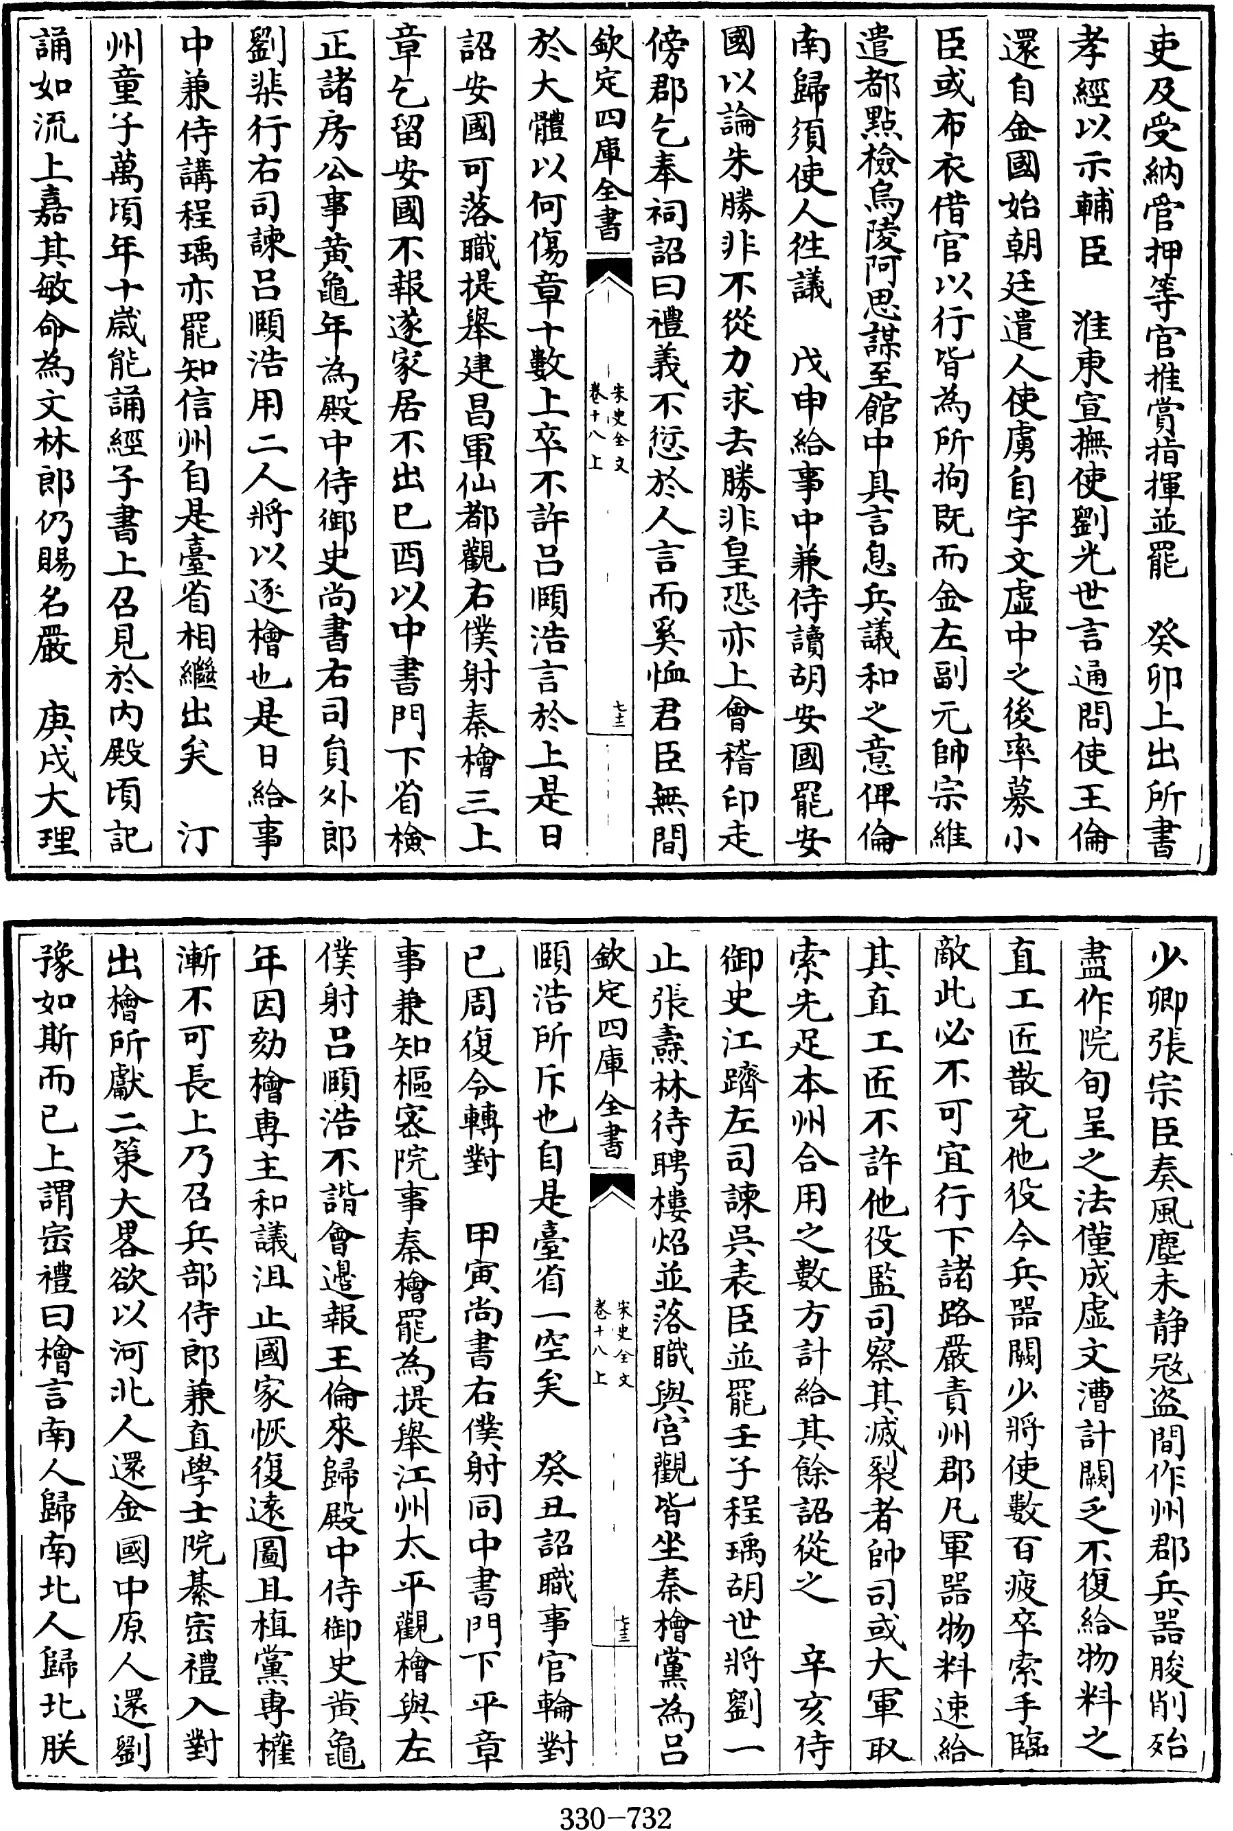 吏及受納官押等官推賞指揮並罷　癸卯上出所書
孝經以示輔臣　淮東宣撫使劉光世言通問使王倫
還自金國始朝廷遣人使虜自宇文虛中之後率募小
臣或布衣借官以行皆為所拘既而金左副元帥宗維
遣都點檢烏陵阿思謀至館中具言息兵議和之意俾倫
南歸須使人往議　戊申給事中兼侍讀胡安國罷安
國以論朱勝非不從力求去勝非皇恐亦上會稽印走
傍郡乞奉祠詔曰禮義不愆於人言而奚恤君臣無間
欽定四庫全書
宋史全文
卷十八上
七十三
於大體以何傷章十數上卒不許呂頤浩言於上是日
詔安國可落職提舉建昌軍仙都觀右僕射秦檜三上
章乞留安國不報遂家居不出已酉以中書門下省檢
正諸房公事黃龜年為殿中侍御史尚書右司員外郎
劉棐行右司諫呂頤浩用二人將以逐檜也是日給事
中兼侍講程瑀亦罷知信州自是臺省相繼出矣　汀
州童子萬頃年十歲能誦經子書上召見於內殿頃記
誦如流上嘉其敏命為文林郎仍賜名嚴　庚戌大理
少卿張宗臣奏風塵未静寇盗間作州郡兵器朘削殆
盡作院旬呈之法僅成虛文漕計闕乏不復給物料之
直工匠散充他役今兵器闕少將使數百疲卒索手臨
敵此必不可宜行下諸路嚴責州郡凡軍器物料速給
其直工匠不許他役監司察其滅裂者帥司或大軍取
索先足本州合用之數方計給其餘詔從之　辛亥侍
御史江躋左司諫吳表臣並罷壬子程瑀胡世將劉一
止張燾林待聘樓炤並落職與宮觀皆坐秦檜黨為呂
欽定四庫全書
宋史全文
卷十八上
七十三
頤浩所斥也自是臺省一空矣　癸丑詔職事官輪對
已周復令轉對　甲寅尚書右僕射同中書門下平章
事兼知樞密院事秦檜罷為提舉江州太平觀檜與左
僕射呂頤浩不諧會邊報王倫來歸殿中侍御史黃龜
年因劾檜專主和議沮止國家恢復遠圖且植黨專權
漸不可長上乃召兵部侍郎兼直學士院綦崈禮入對
出檜所獻二策大畧欲以河北人還金國中原人還劉
豫如斯而已上謂崈禮曰檜言南人歸南北人歸北朕
330-732